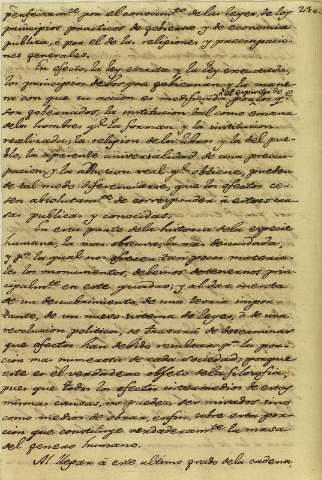 210.
perfeccionamto. por el conocimto. de las leyes, de los
principios practicos de gobierno y de economia
publica, o por el de las religiones, y preocupacio
nes generales.
En efecto, la ley escrita y la ley executada,
los principios de los que gobiernan y la mane
ra con que su accion es modificada por los q.e
son gobernados, la institucion tal como emana
de los hombres q.e la forman, y la institucion
realizada; la religion de los libros y la del pue
blo, la aparente universalidad de una preocu
pacion, y la adhesion real q.e obtiene, pueden
de tal modo diferenciarse, que los efectos ce
sen absolutamte. de corresponder a estas cau
sas publicas y conocidas.
En esta parte de la historia de la especie
humana, la mas obscura, la mas descuidada,
y pa. la qual nos ofrecen tan pocos materia
les los monumentos, debemos detenernos, prin
cipalmte. en este quadro; y al dar cuenta
de un descubrimiento, de una teoria impor
tante, de un nuevo sistema de leyes, o de una
revolucion politica, se tratará de determinar
que efectos han debido resultar pa. la por
cion mas numerosa de cada sociedad; porque
este es el verdadero objeto de la filosofia,
pues que todos los efectos intermedios de estas
mismas causas, no pueden ser mirados sino
como medios de obrar, en fin, sobre esta por
cion que constituye verdaderamte. la masa
del genero humano.
Al llegar a este ultimo grado de la cadena,